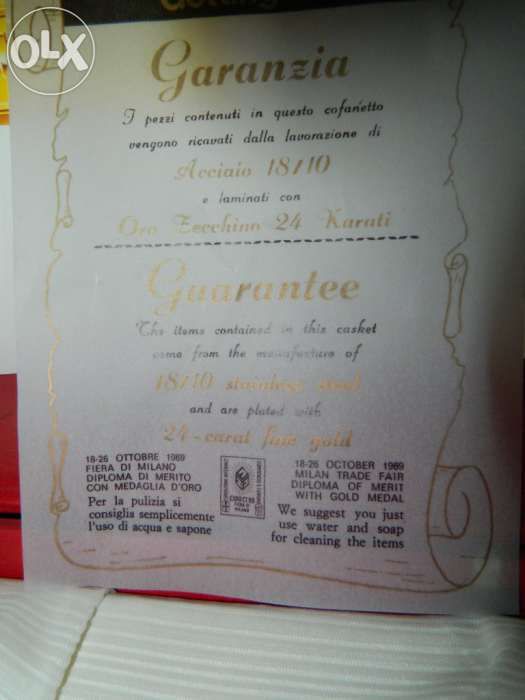 OLX
Garanzia
I pezzi contenuti in questo cofanetto
vengono ricavati dalla lavorazione di
Acciaio 18/10
e laminati con
Oro Zecchino 24 Karati
Guarantee
The items contained in this casket
come from the manufacture of
18/10 stainless steel
and are plated with
24-carat fine gold
18-26 OTTOBRE 1969
FIERA DI MILANO
DIPLOMA DI MERITO
CON MEDAGLIA D'ORO
Per la pulizia si
consiglia semplicemente
l'uso di acqua e sapone
18-26 OCTOBER 1969
MILAN TRADE FAIR
DIPLOMA OF MERIT
WITH GOLD MEDAL
We suggest you just
use water and soap
for cleaning the items